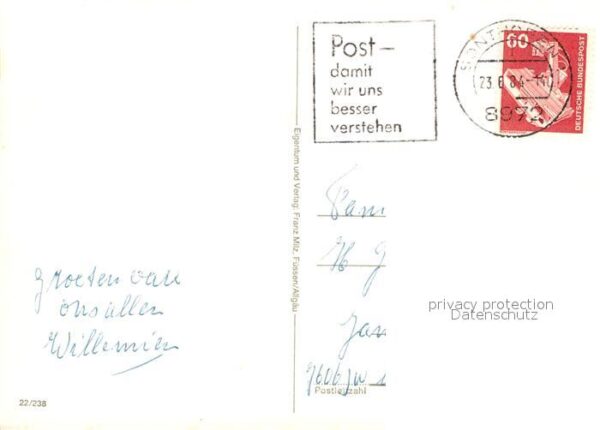 Post–
damit
wir uns
besser
verstehen
SONTHOFEN
23.6.84
8972
60
DEUTSCHE BUNDESPOST
Eigentum und Verlag: Franz Milz, Füssen/Allgäu
Fam
H G
Jan
9606
Postleitzahl
groeten van
ons allen
Willemien
privacy protection
Datenschutz
22/238